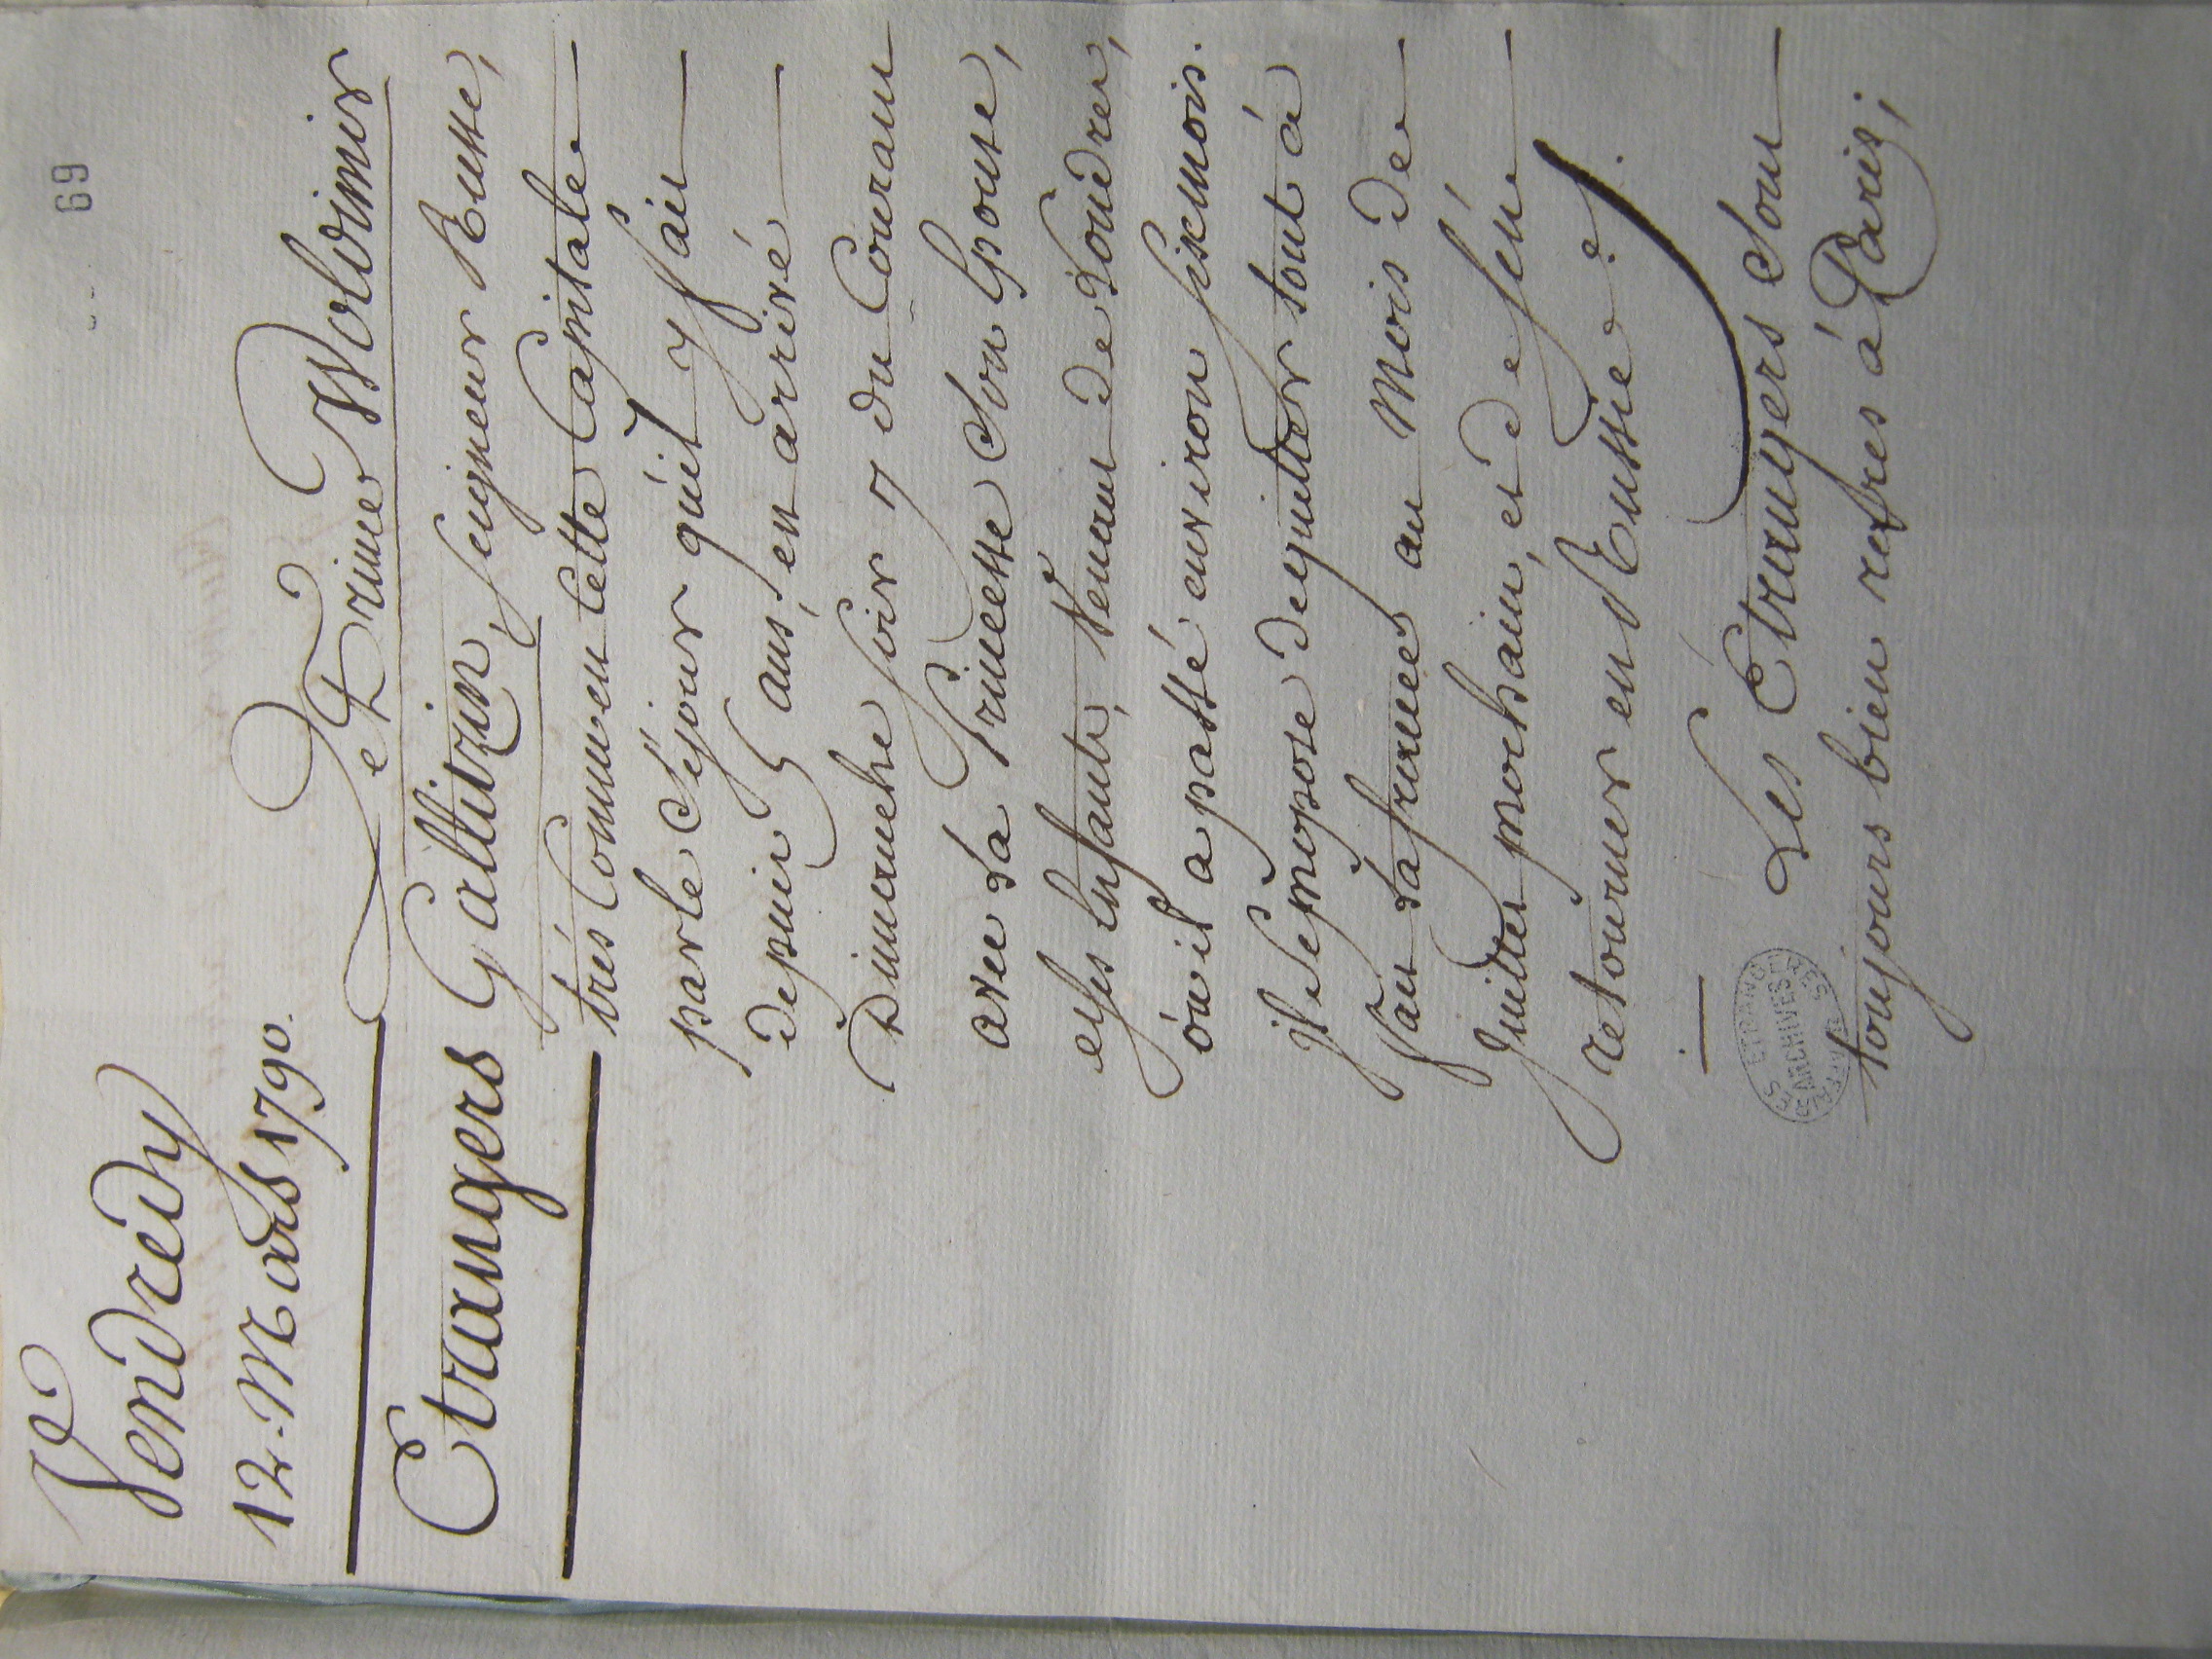 69
Vendredy
12. Mars 1790.
Etrangers
Le Prince Woldimir
Gallitzin, seigneur Russe,
très Connu en Cette Capitale
par le Séjour qu'il y fait
depuis 5 ans, est arrivé
Dimanche soir 7 du Courant
avec La Princesse Son Epouse,
et ses Enfants, Venant de Londres,
où il a passé environ six mois.
il se propose de quitter tout à
fait La france au Mois de
Juillet prochain, et de s'en
retourner en Russie.
Les Etrangers Sont
toujours bien restres à Paris;
ARCHIVES